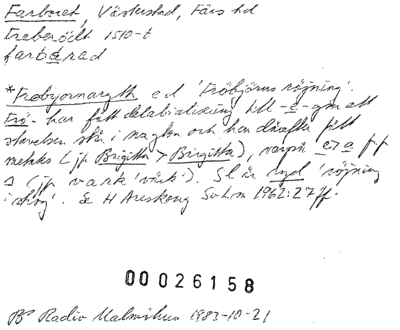 Farboret, Västerstad, Färs hd
Freberödt 1510-t
farbärad
*Frøbyornarydh e d 'Fröbjörns röjning'.
Frö- har fått delabialisering till -e- gm att
stavelsen står i naglen och har därefter fått
metates (jfr Brigitta > Birgitta), varpå e > a p g a
r (jfr vark 'värk'). Sl är ryd 'röjning
i skog'. Se H Areskoug SvLm 1962:27 ff.
00026158
BP Radio Malmöhus 1983-10-21